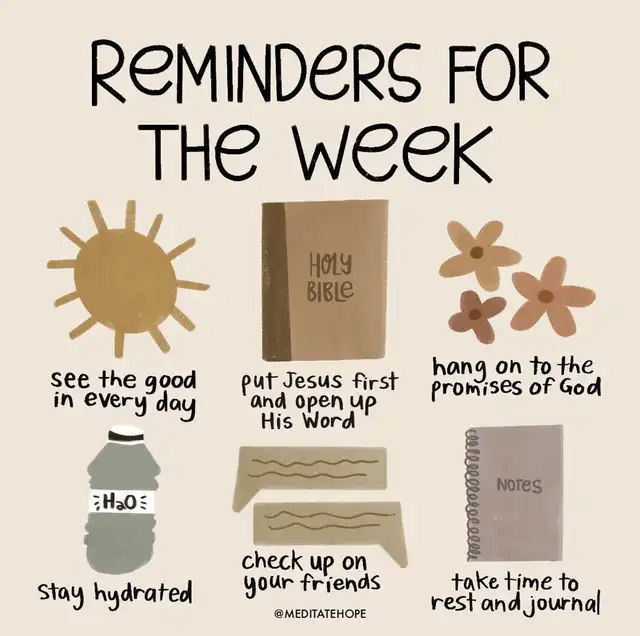 REMINDERS FOR
THE WEEK
HOLY
BIBLE
see the good
in every day
put Jesus first
and open up
His Word
hang on to the
promises of God
H2O
stay hydrated
check up on
your friends
NOTES
take time to
rest and journal
@MEDITATEHOPE